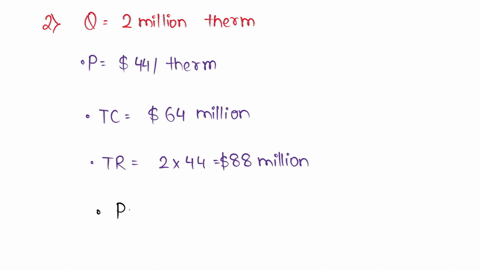 2) Q = 2 million therm
• P = $ 44 / therm
• TC = $ 64 million
• TR = 2 × 44 = $88 million
• P